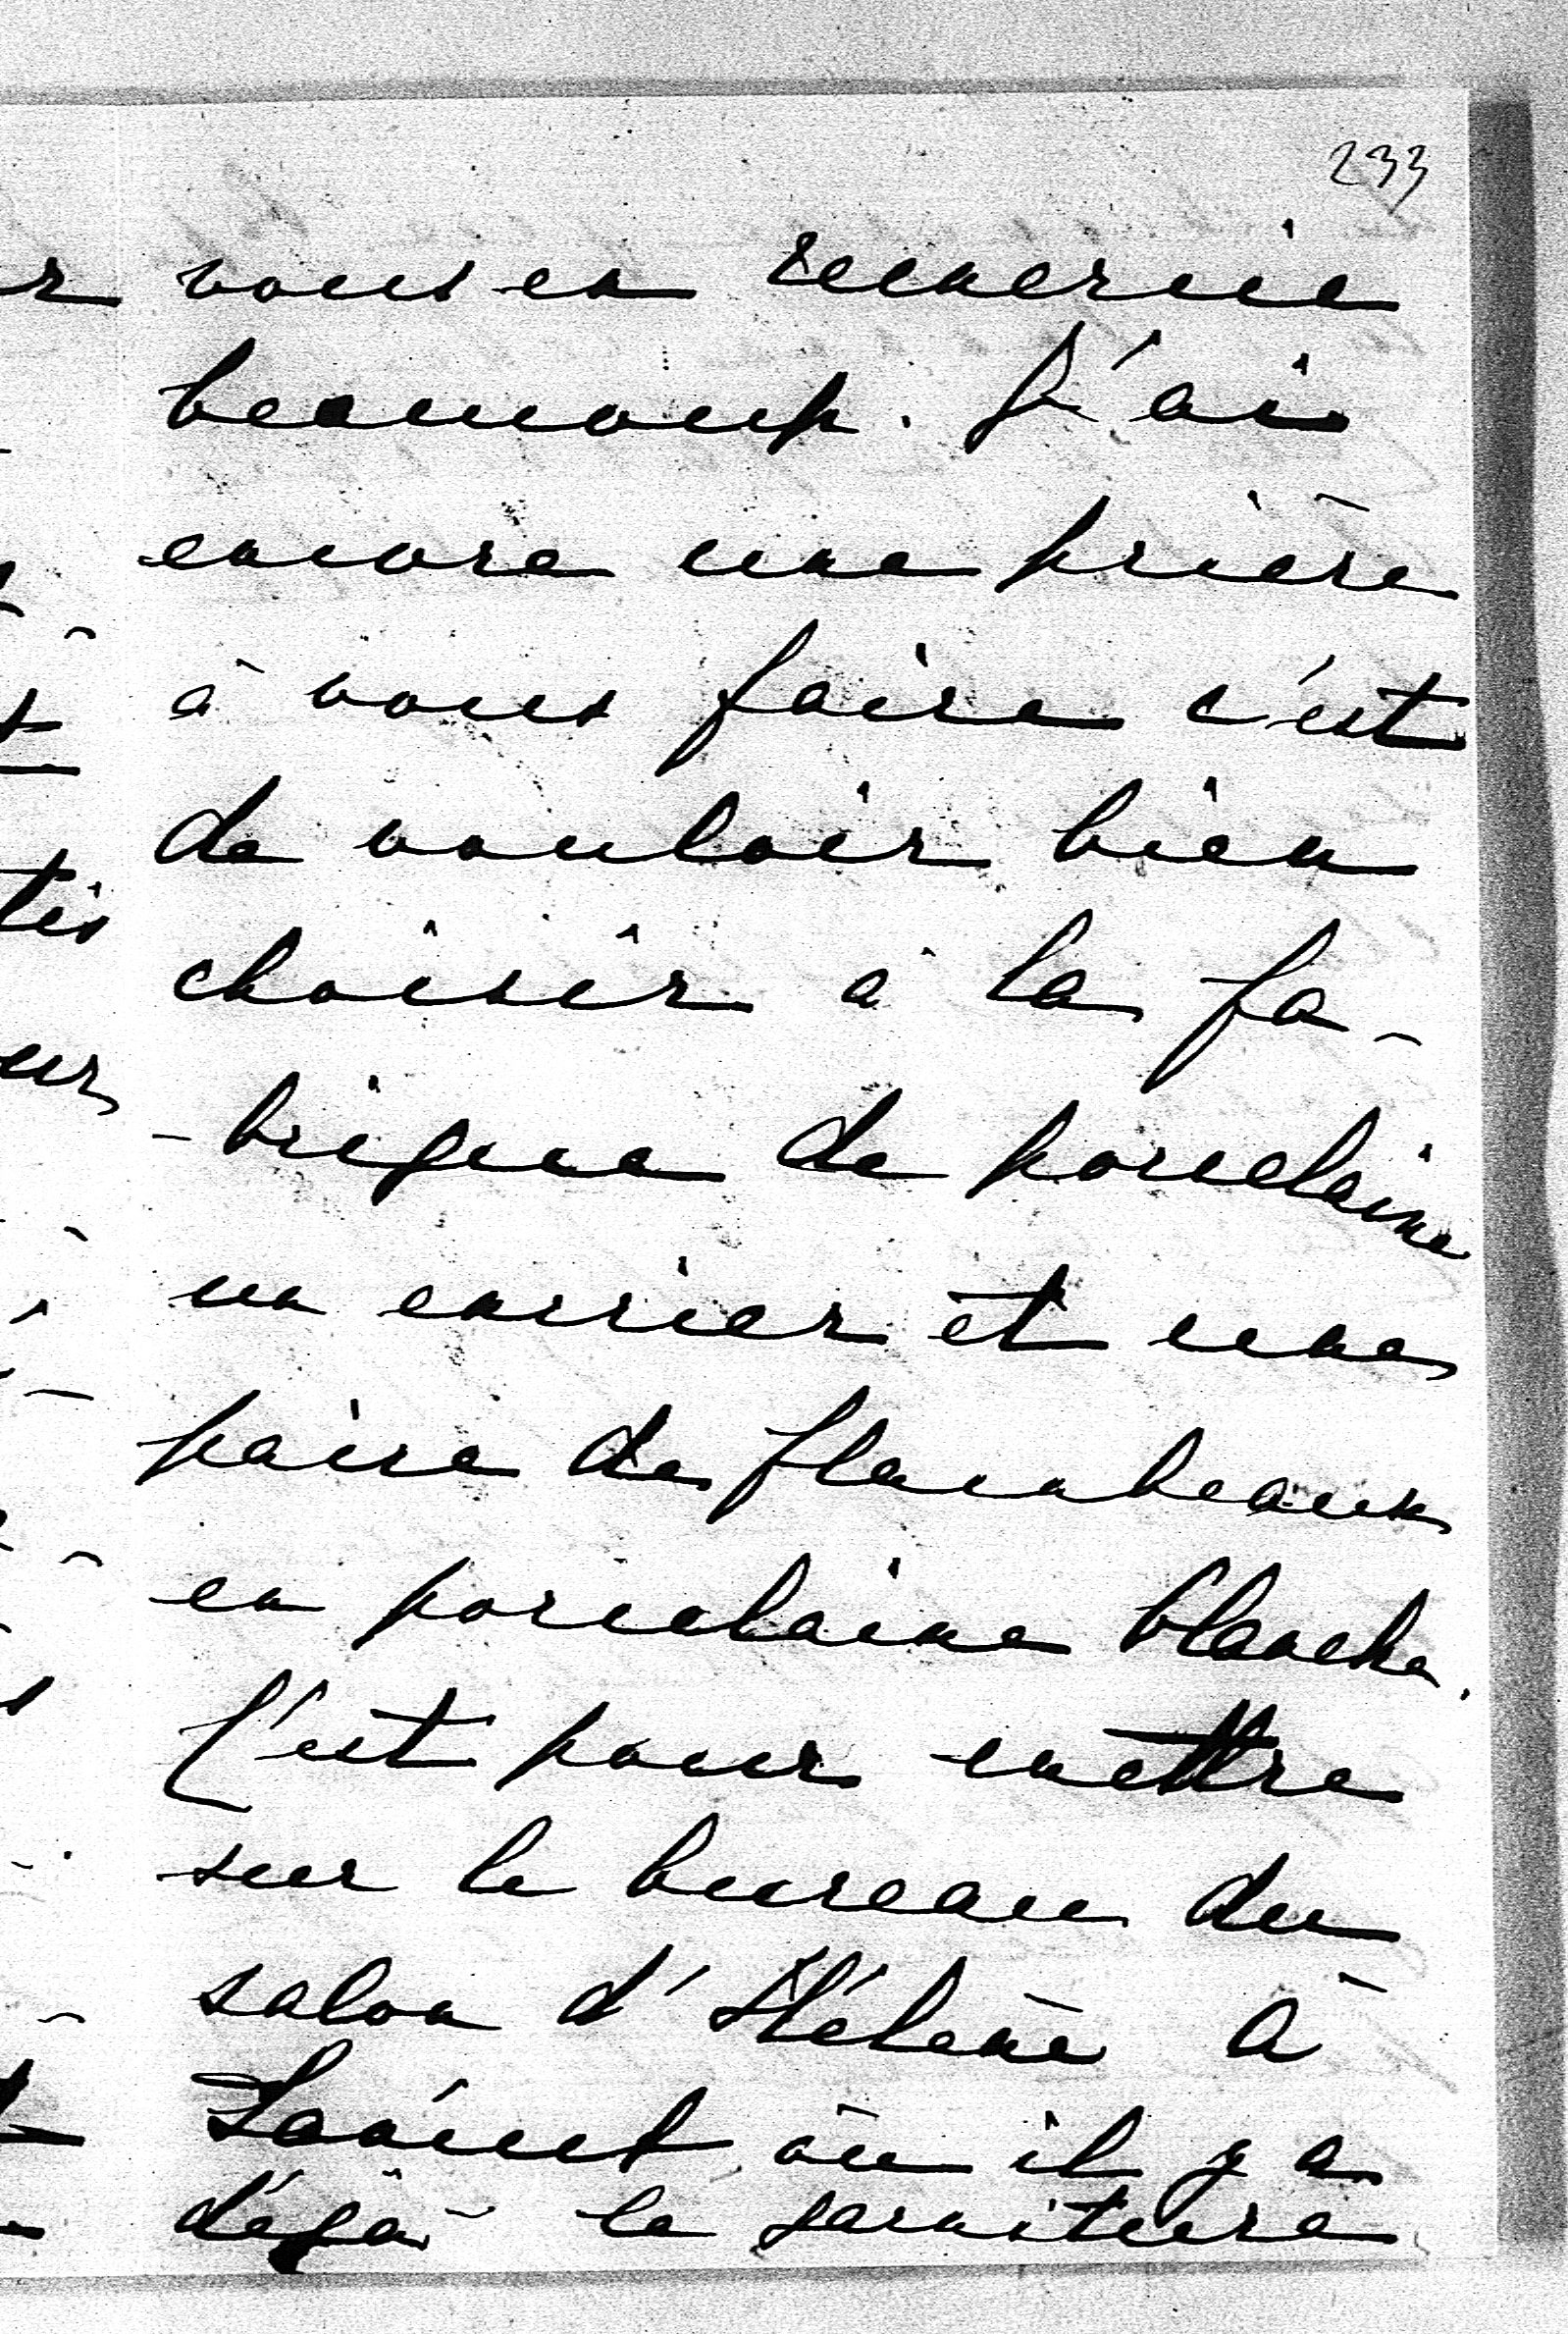 233
vous en remercie
beaucoup. J'ai
encore une prière
à vous faire c'est
de vouloir bien
choisir à la fa-
-brique de porcelaine
un encrier et une
paire de flambeaux
en porcelaine blanche.
C'est pour mettre
sur le bureau du
salon d'Hélène à
où il y a
déjà la garniture